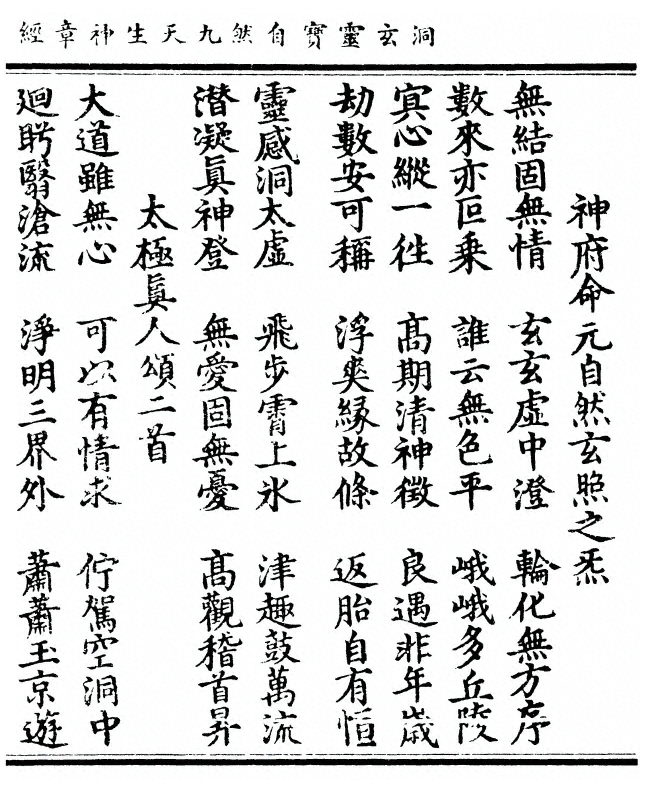 洞玄靈寶自然九天生神章經
神府命元自然玄照之炁
無結固無情　玄玄虛中澄　輪化無方序
數來亦叵乗　誰云無色平　峨峨多丘陵
㝠心縱一徃　髙期清神徵　良遇非年歲
劫數安可稱　浮爽緣故條　返胎自有恒
靈感洞太虛　飛步霄上氷　津趣鼓萬流
潛凝眞神登　無愛固無憂　髙觀稽首昇
太極眞人頌二首
大道雖無心　可以有情求　佇駕空洞中
迴盻翳滄流　淨明三界外　蕭蕭玉京遊